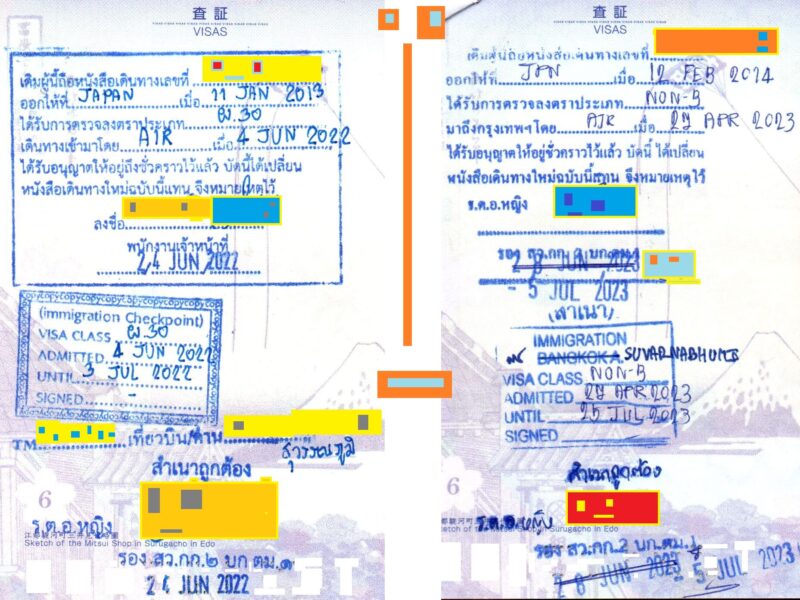 査証
VISAS
เดิมผู้นี้ถือหนังสือเดินทางเลขที่
ออกให้ที่ JAPAN เมื่อ 11 JAN 2013
ได้รับการตรวจลงตราประเภท ผ.30
เดินทางเข้ามาโดย AIR เมื่อ 4 JUN 2022
ได้รับอนุญาตให้อยู่ถึงชั่วคราวไว้แล้ว บัดนี้ได้เปลี่ยน
หนังสือเดินทางใหม่ฉบับนี้แทน จึงหมายเหตุไว้
ลงชื่อ
พนักงานเจ้าหน้าที่
24 JUN 2022
(immigration Checkpoint)
VISA CLASS ผ.30
ADMITTED 4 JUN 2022
UNTIL 3 JUL 2022
SIGNED -
TM. เที่ยวบิน/ด่าน
สุวรรณภูมิ
สำเนาถูกต้อง
6
ร.ต.อ.หญิง
江都駿河町三井見世略図
Sketch of the Mitsui Shop in Surugacho in Edo
รอง สว.กก.๒ บก ตม.๑
24 JUN 2022
査証
VISAS
เดิมผู้นี้ถือหนังสือเดินทางเลขที่
ออกให้ที่ JPN เมื่อ 12 FEB 2014
ได้รับการตรวจลงตราประเภท NON-B
มาถึงกรุงเทพฯโดย AIR เมื่อ 27 APR 2023
ได้รับอนุญาตให้อยู่ชั่วคราวไว้แล้ว บัดนี้ ได้เปลี่ยน
หนังสือเดินทางใหม่ฉบับนี้แทน จึงหมายเหตุไว้
ร.ต.อ.หญิง
รอง สว.กก.2 บก.ตม.1
28 JUN 2023
- 5 JUL 2023
(สำเนา)
IMMIGRATION
BANGKOK A. SUVARNABHUMI
VISA CLASS NON-B
ADMITTED 27 APR 2023
UNTIL 25 JUL 2023
SIGNED
สำเนาถูกต้อง
6
ร.ต.อ.หญิง
Sketch of the Mitsui Shop in Surugacho in Edo
รอง สว.กก.2 บก.ตม.1
28 JUN 2023 - 5 JUL 2023